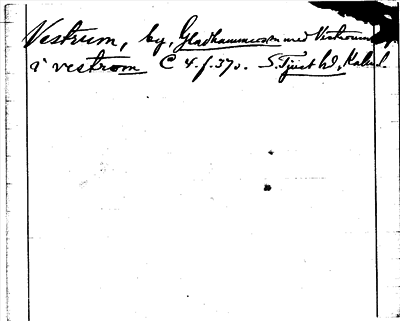 Vestrum, by, Gladhammars sn med Västrum
i vestrom C 4. f. 370. S. Tjust hd, Kalm. l.